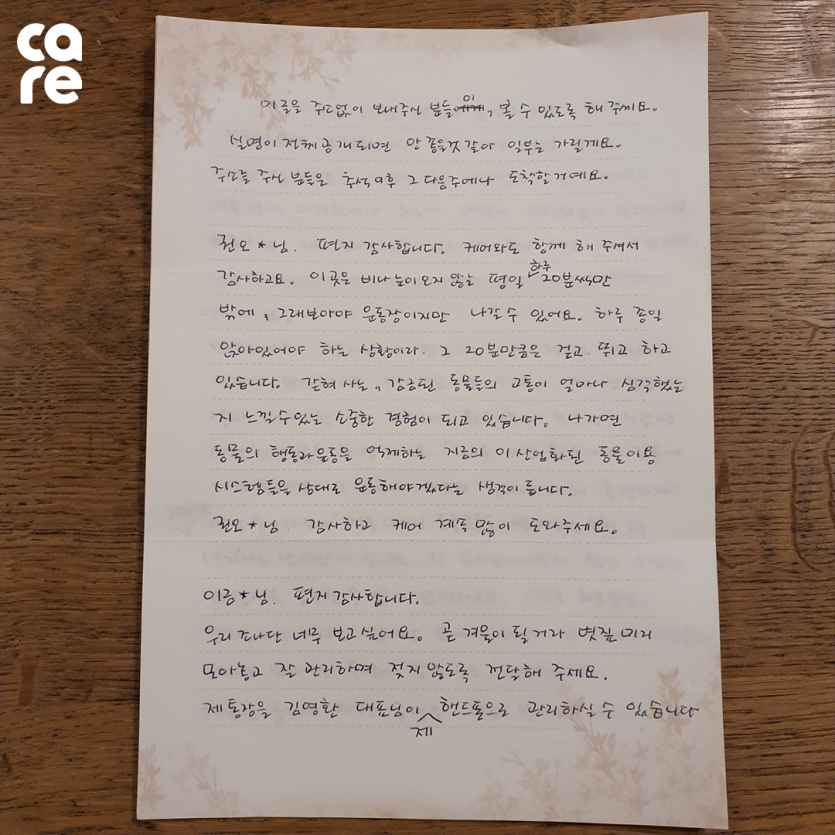 care
이 글을 주소없이 보내주신 분들이, 볼 수 있도록 해 주세요.
실명이 전체 공개되면 안 좋을것 같아 일부는 가릴게요.
주소를 주신 분들은 추석 이후 그 다음주에나 도착할거예요.
권오*님. 편지 감사합니다. 케어와도 함께 해 주셔서
감사하고요. 이 곳은 비나 눈이 오지 않는 평일 하루 20분씩만
밖에, 그래보아야 운동장이지만 나갈 수 있어요. 하루 종일
앉아있어야 하는 상황이라. 그 20분만큼은 걷고 뛰고 하고
있습니다. 갇혀 사는, 감금된 동물들의 고통이 얼마나 심각했는
지 느낄 수 있는 소중한 경험이 되고 있습니다. 나가면
동물의 행동과 운동을 억제하는 지금의 이 산업화된 동물이용
시스템들을 상대로 운동해야겠다는 생각이 듭니다.
권오*님 감사하고 케어 계속 많이 도와주세요.
이금*님. 편지 감사합니다.
우리 너무 보고싶어요. 곧 겨울이 될거라 볏짚 미리
모아놓고 잘 관리하며 젖지 않도록 전달해 주세요.
제 통장을 김영환 대표님이 제 핸드폰으로 관리하실 수 있습니다